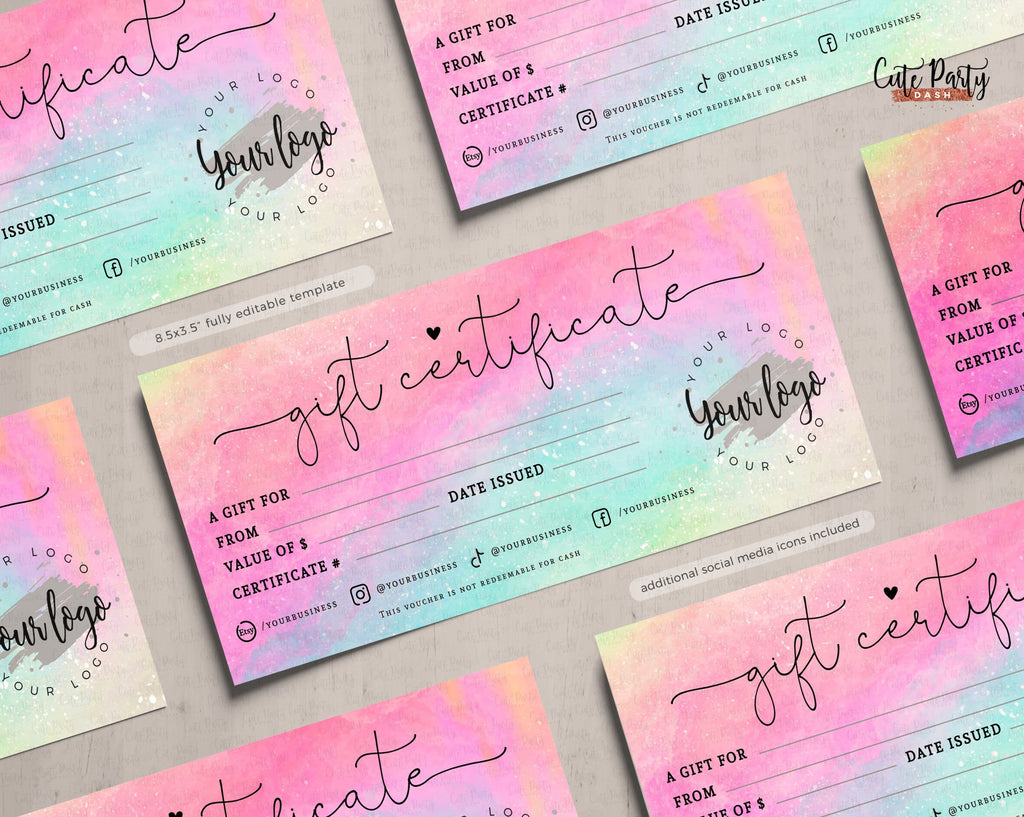 tificate
YOUR LOGO
Your logo
YOUR LOGO
ISSUED
@YOURBUSINESS
/YOURBUSINESS
REDEEMABLE FOR CASH
A GIFT FOR
FROM
DATE ISSUED
VALUE OF $
CERTIFICATE #
Etsy /YOURBUSINESS @YOURBUSINESS @YOURBUSINESS /YOURBUSINESS
THIS VOUCHER IS NOT REDEEMABLE FOR CASH
Cute Party
DASH
8.5x3.5" fully editable template
gift certificate
YOUR LOGO
Your logo
YOUR LOGO
A GIFT FOR
FROM
VALUE OF $ DATE ISSUED
CERTIFICATE #
Etsy /YOURBUSINESS @YOURBUSINESS @YOURBUSINESS /YOURBUSINESS
THIS VOUCHER IS NOT REDEEMABLE FOR CASH
additional social media icons included
g
A GIFT FOR
FROM
VALUE OF $
CERTIFIC
Etsy /YOURBUS
LOGO
our logo
YOUR LOGO
gift certifi
A GIFT FOR
FROM
DATE ISSUED
VALUE OF $
@YOURBUSINESS
tificate
YOUR LOGO